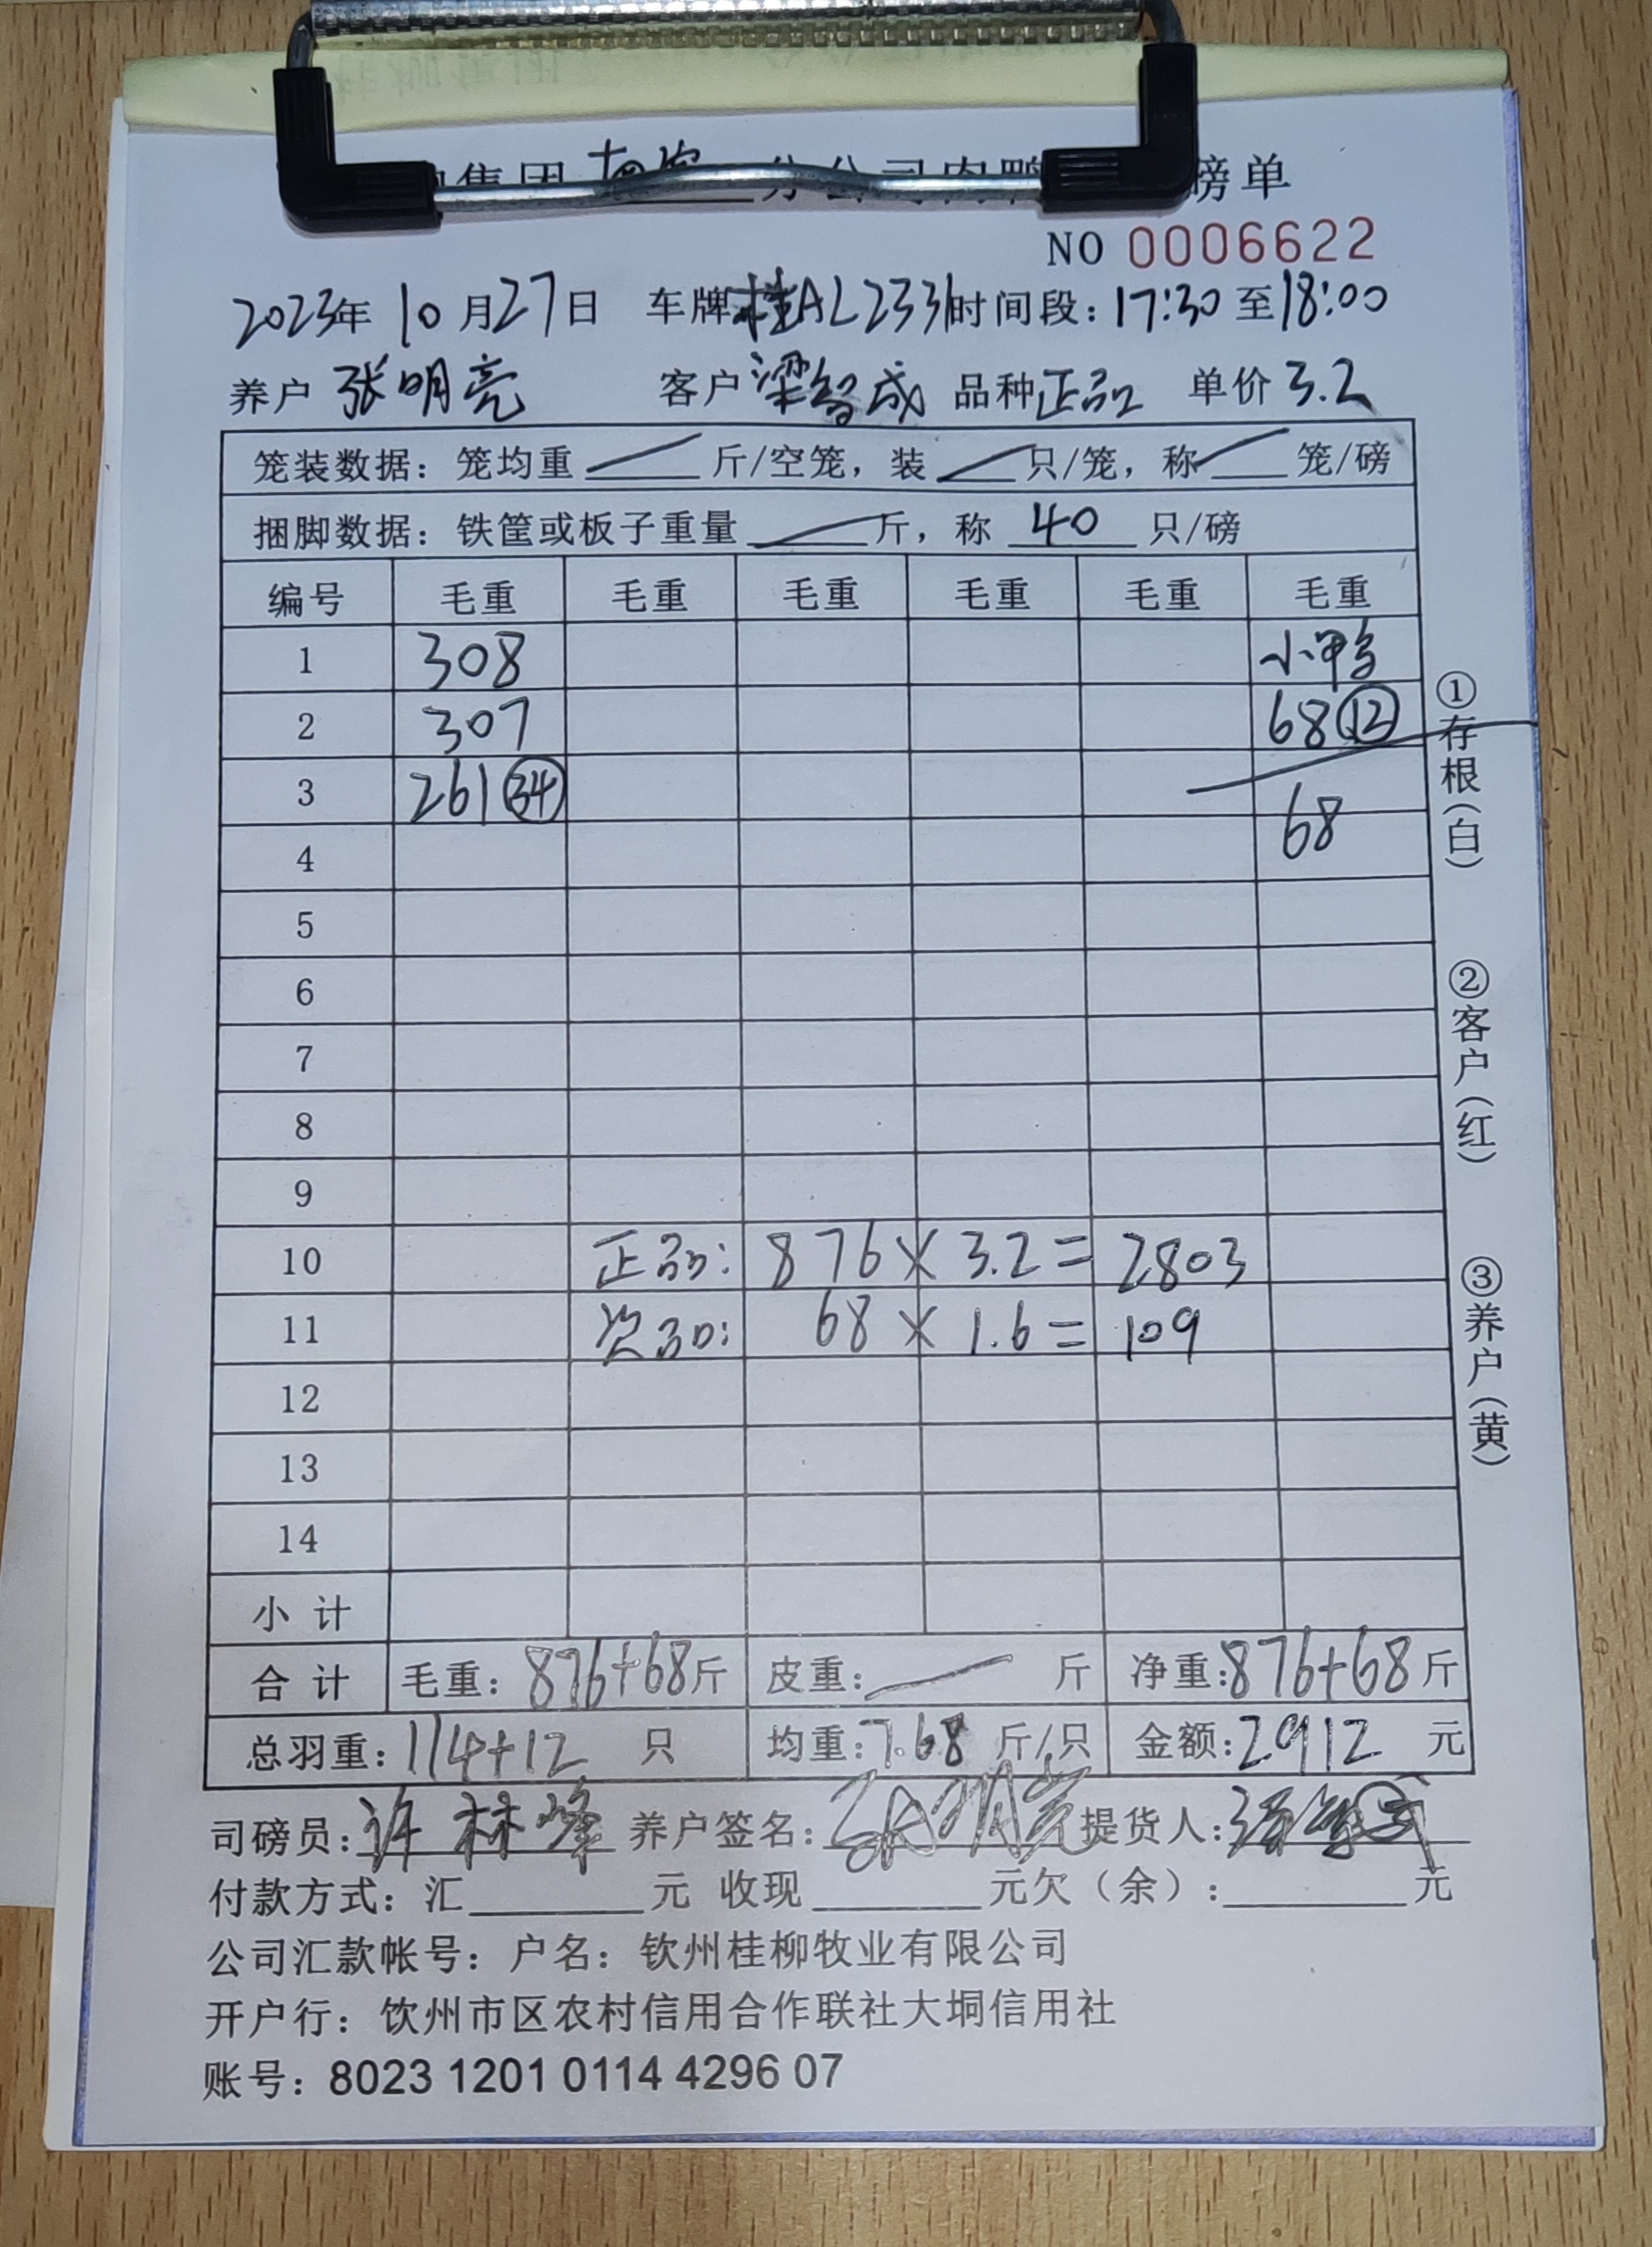 集团 分公司肉鸭 磅单
NO 0006622
2023年 10月27日 车牌桂AL2331时间段：17:30至18:00
养户 张明亮 客户 梁智成 品种正品 单价 3.2
笼装数据：笼均重 斤/空笼，装 只/笼，称 笼/磅
捆脚数据：铁筐或板子重量 斤，称 40 只/磅
编号 毛重 毛重 毛重 毛重 毛重 毛重
1 308 小鸭
2 307 68⑫
3 261㉞
4 68
5
6
7
8
9
10 正品: 876×3.2= 2803
11 次品: 68×1.6= 109
12
13
14
小计
合计 毛重：876+68斤 皮重： 斤 净重：876+68斤
总羽重：114+12 只 均重：7.68 斤/只 金额：2912 元
司磅员：许林峰 养户签名：张明亮 提货人：
付款方式：汇 元 收现 元欠（余）： 元
公司汇款帐号：户名：钦州桂柳牧业有限公司
开户行：钦州市区农村信用合作联社大垌信用社
账号：8023 1201 0114 4296 07
①存根(白)
②客户(红)
③养户(黄)